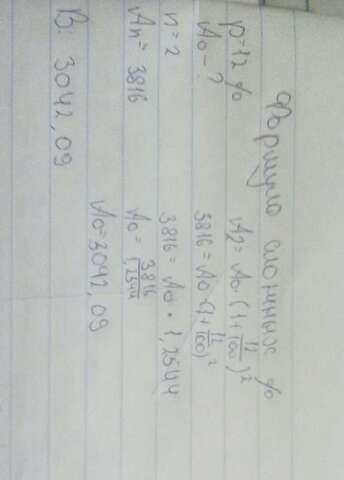 Формула сложных %
p=12 %
A₀ - ?
n = 2
Aₙ = 3816
A₂ = A₀ (1 + 12/100)²
3816 = A₀ · (1 + 12/100)²
3816 = A₀ · 1,2544
A₀ = 3816/1,2544
A₀ = 3042,09
В: 3042,09